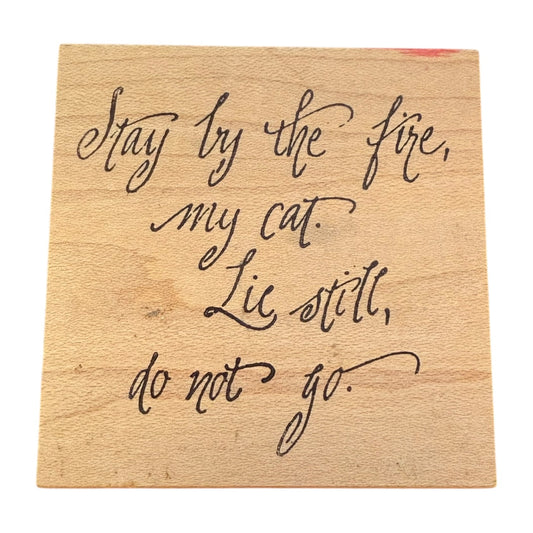 Stay by the fire,
my cat.
Lie still,
do not go.